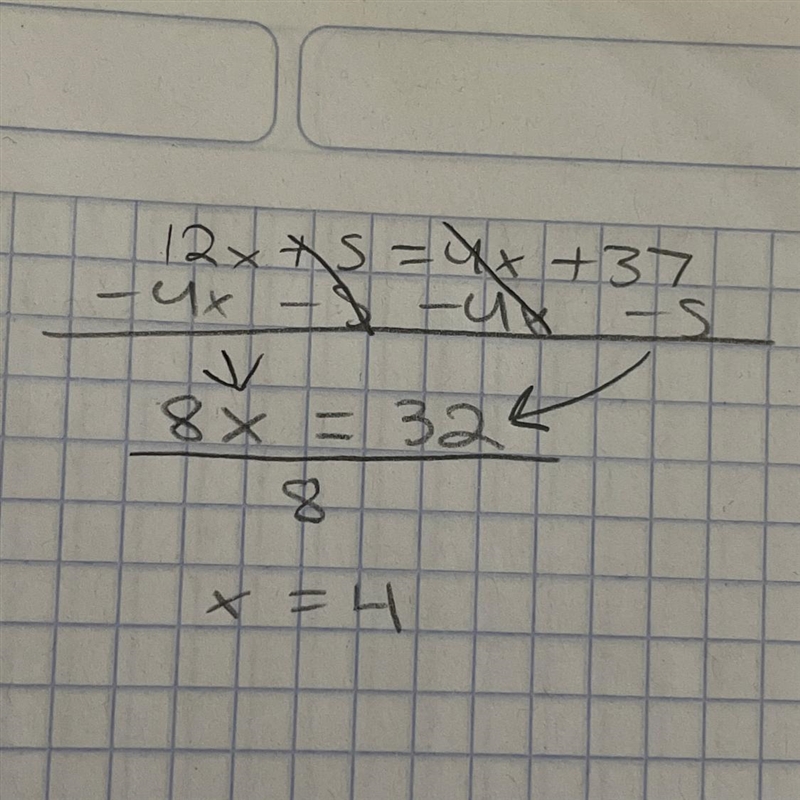 12x + 5 = 4x + 37
- 4x - 5 - 4x - 5
8x = 32
8
x = 4